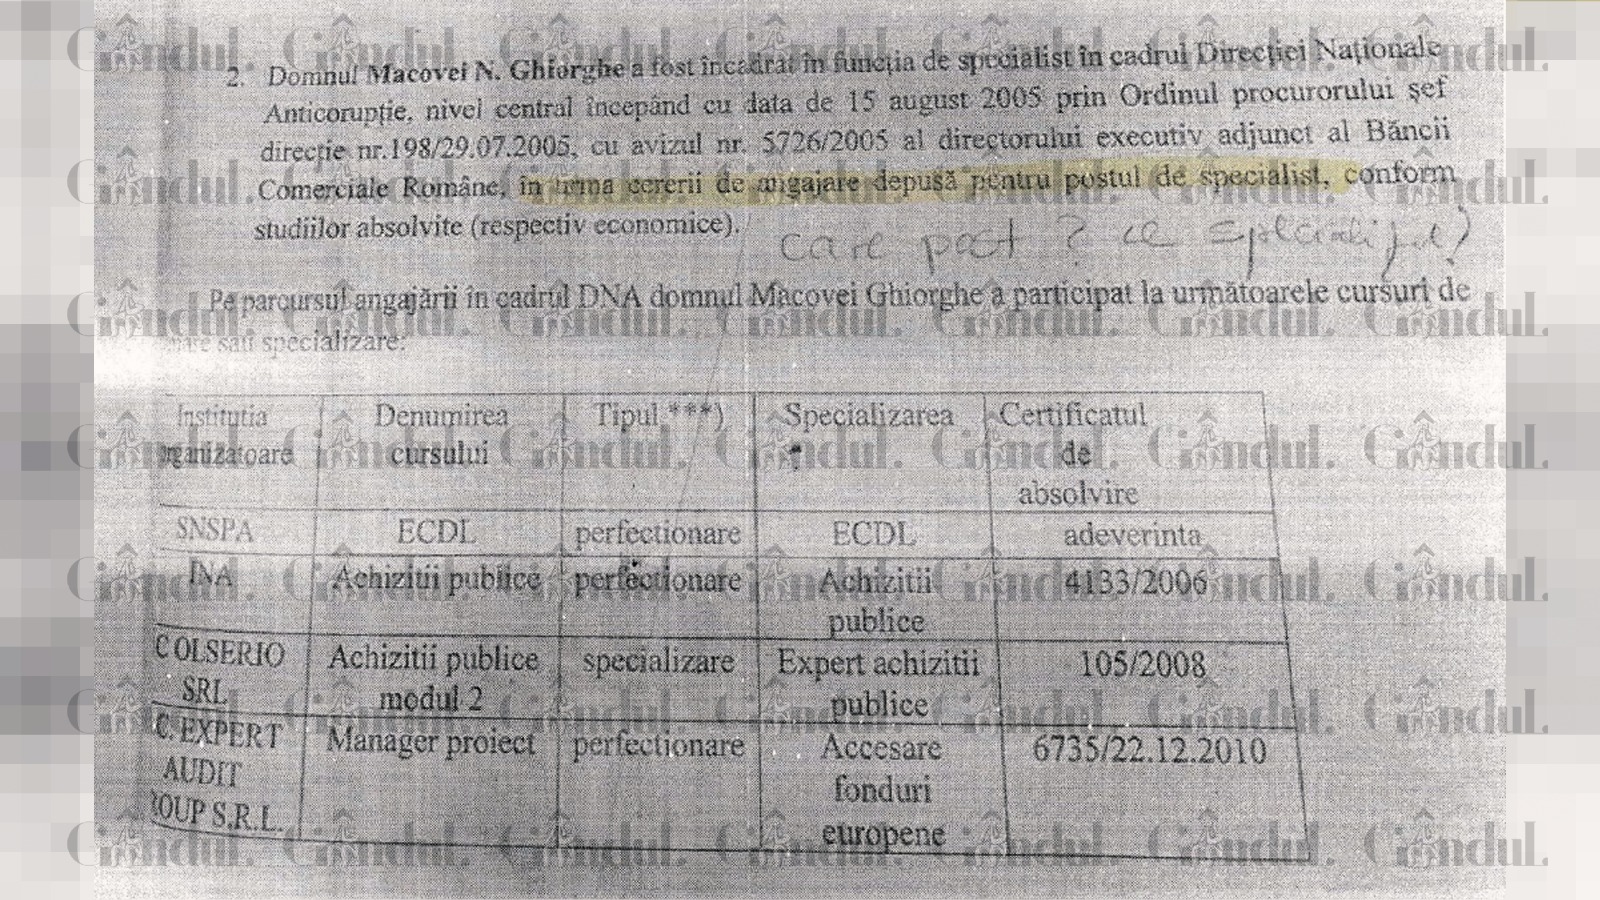 2. Domnul Macovei N. Ghiorghe a fost încadrat în funcția de specialist în cadrul Direcției Naționale
Anticorupție, nivel central începând cu data de 15 august 2005 prin Ordinul procurorului șef
direcție nr.198/29.07.2005, cu avizul nr. 5726/2005 al directorului executiv adjunct al Băncii
Comerciale Române, în urma cererii de angajare depusă pentru postul de specialist, conform
studiilor absolvite (respectiv economice).
care post ? ce
Pe parcursul angajării în cadrul DNA domnul Macovei Ghiorghe a participat la următoarele cursuri de
sau specializare:
Institutia organizatoare Denumirea cursului Tipul ***) Specializarea Certificatul de absolvire
SNSPA ECDL perfectionare ECDL adeverinta
INA Achizitii publice perfectionare Achizitii publice 4133/2006
C OLSERIO SRL Achizitii publice modul 2 specializare Expert achizitii publice 105/2008
C. EXPERT AUDIT ROUP S.R.L. Manager proiect perfectionare Accesare fonduri europene 6735/22.12.2010
Gândul.